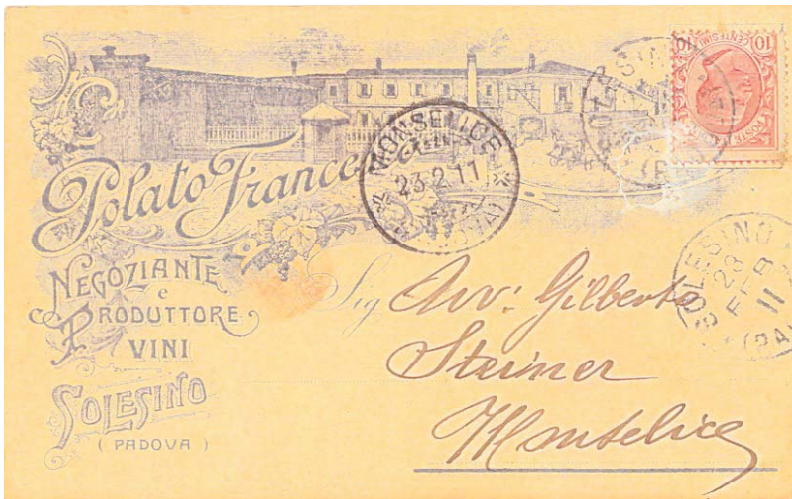 Polato France
NEGOZIANTE
e
PRODUTTORE
VINI
SOLESINO
( PADOVA )
10 CENTESIMI 10
POSTE
MONSELICE
23.2.11
SOLESINO
23
FEB
11
(PA
Sig Avv: Gilberto
Steiner
Monselice